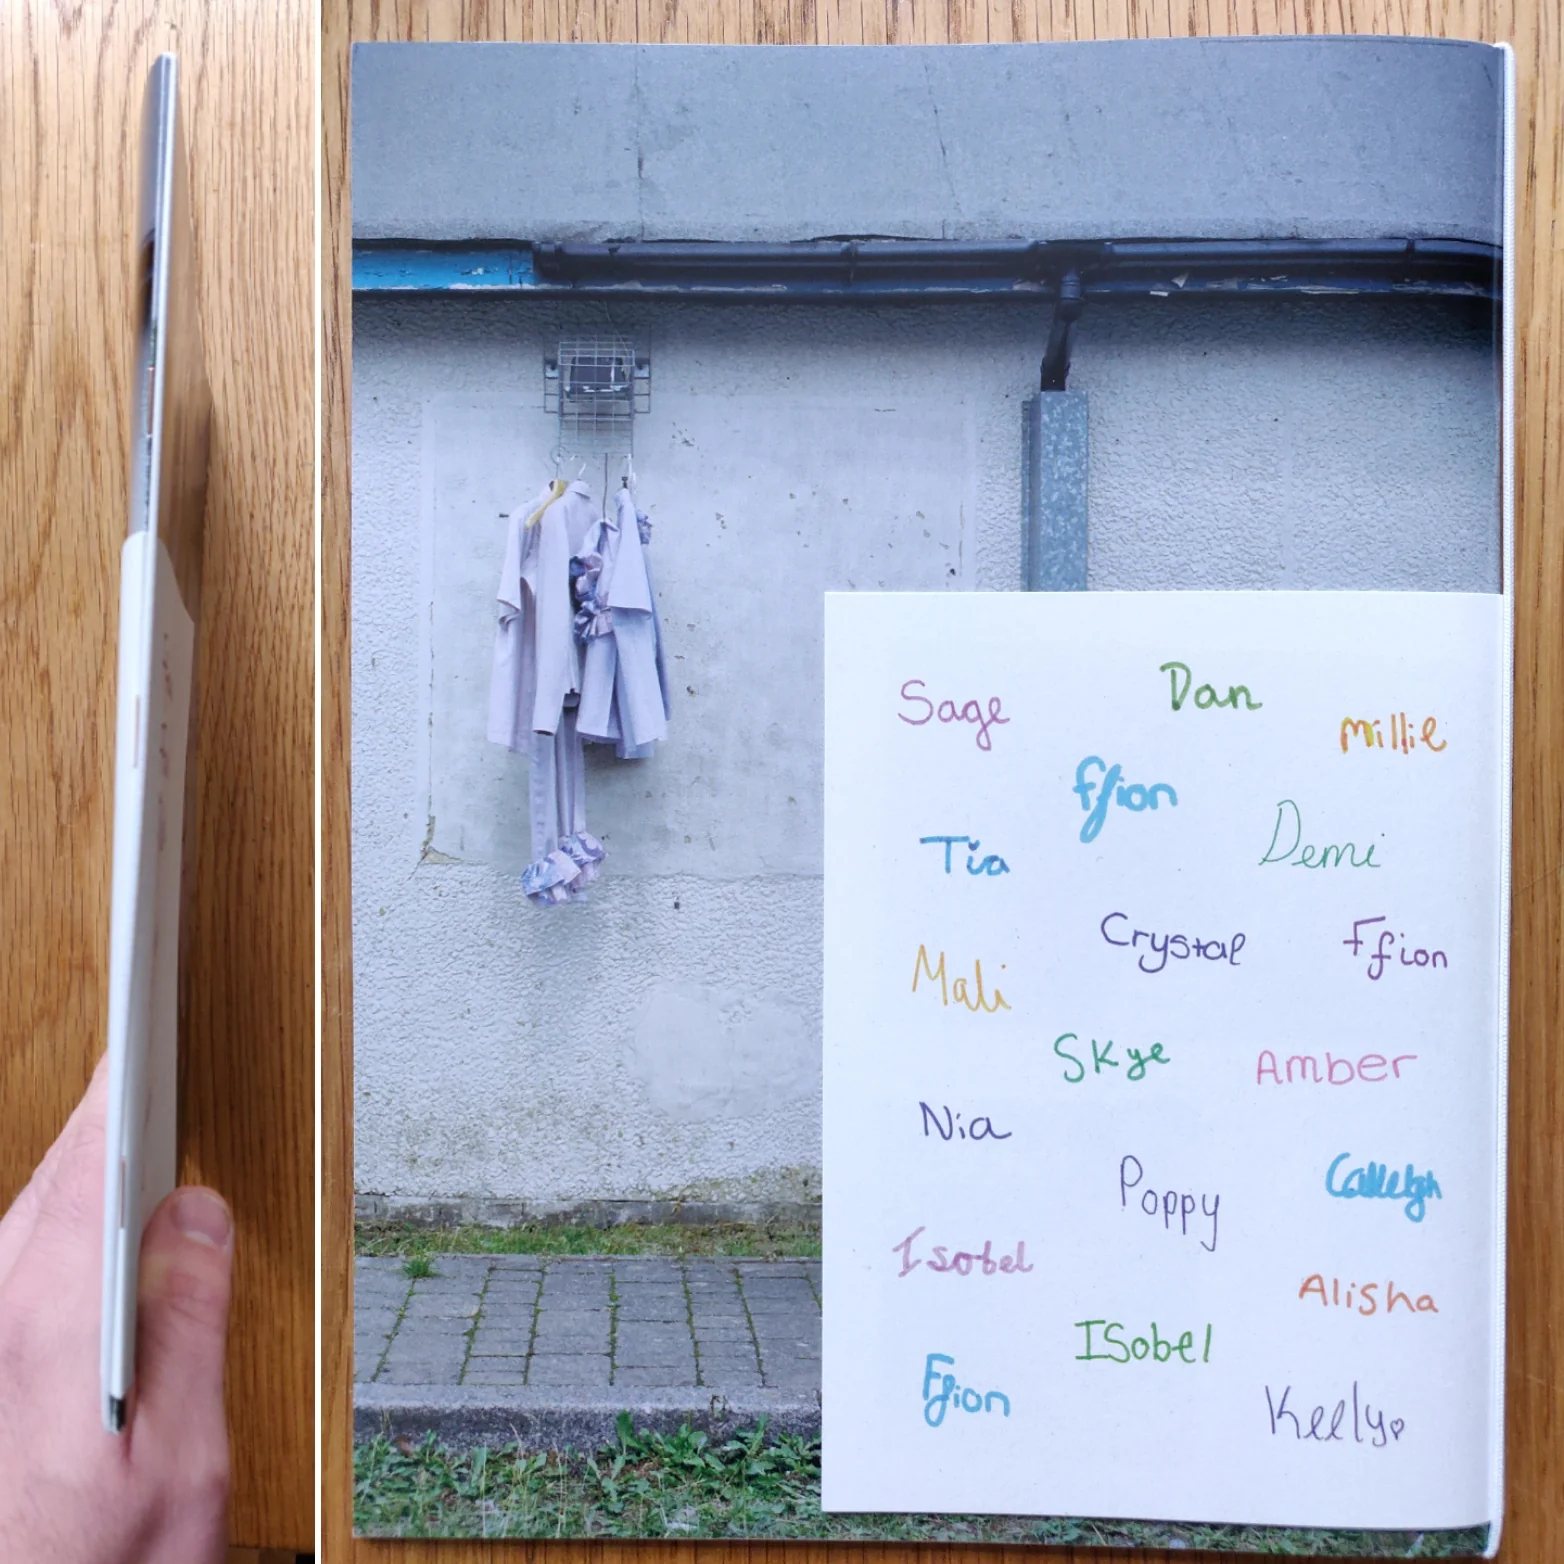 Sage
Dan
Millie
ffion
Tia
Demi
Crystal
Ffion
Mali
Skye
Amber
Nia
Poppy
Calleigh
Isobel
Alisha
ISobel
Ffion
Keely